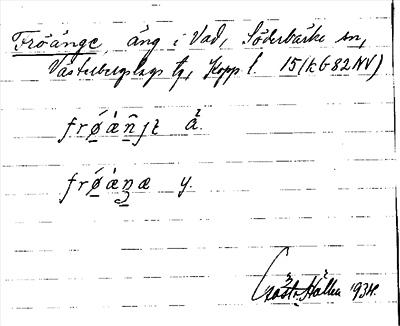 Fröänge, äng i Vad, Söderbärke sn,
Västerbergslags tg, Kopp l. 15(hG82NV)
frø̀ànjɛ̀ ä.
frø̀ànæ y.
Gösta Hallin 1934.